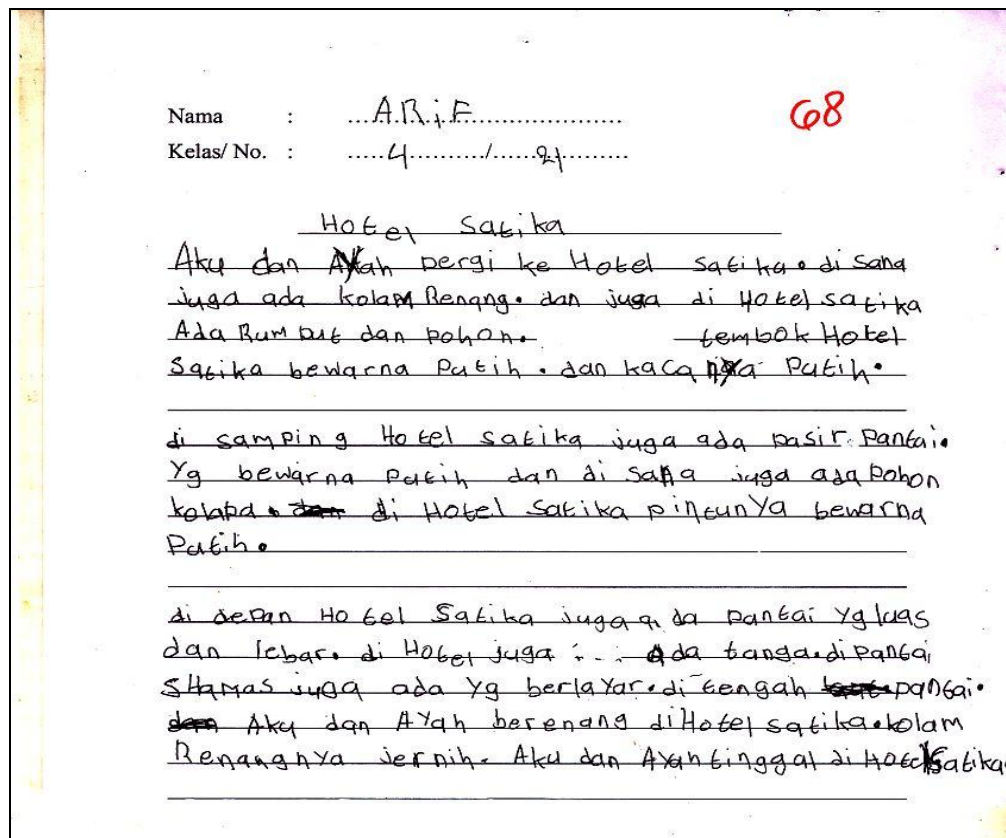 Nama : ...ARiF...
68
Kelas/ No. : ...4.../...21...
Hotel Satika
Aku dan Ayah pergi ke Hotel Satika. di sana
juga ada kolam Renang. dan juga di Hotel satika
Ada Rumput dan pohon. tembok Hotel
Satika bewarna Putih. dan kacanya Putih.
di samping Hotel satika juga ada pasir pantai.
Yg bewarna Putih dan di sana juga ada pohon
kolapa. di Hotel Satika pintunya bewarna
Putih.
di depan Hotel Satika juga ada pantai Yg luas
dan lebar. di Hotel juga ... Ada tanga. di pantai
SHamas juga ada Yg berlayar. di tengah pantai.
Aku dan Ayah berenang di Hotel satika. kolam
Renangnya Jernih. Aku dan Ayah tinggal di Hotel Satika.